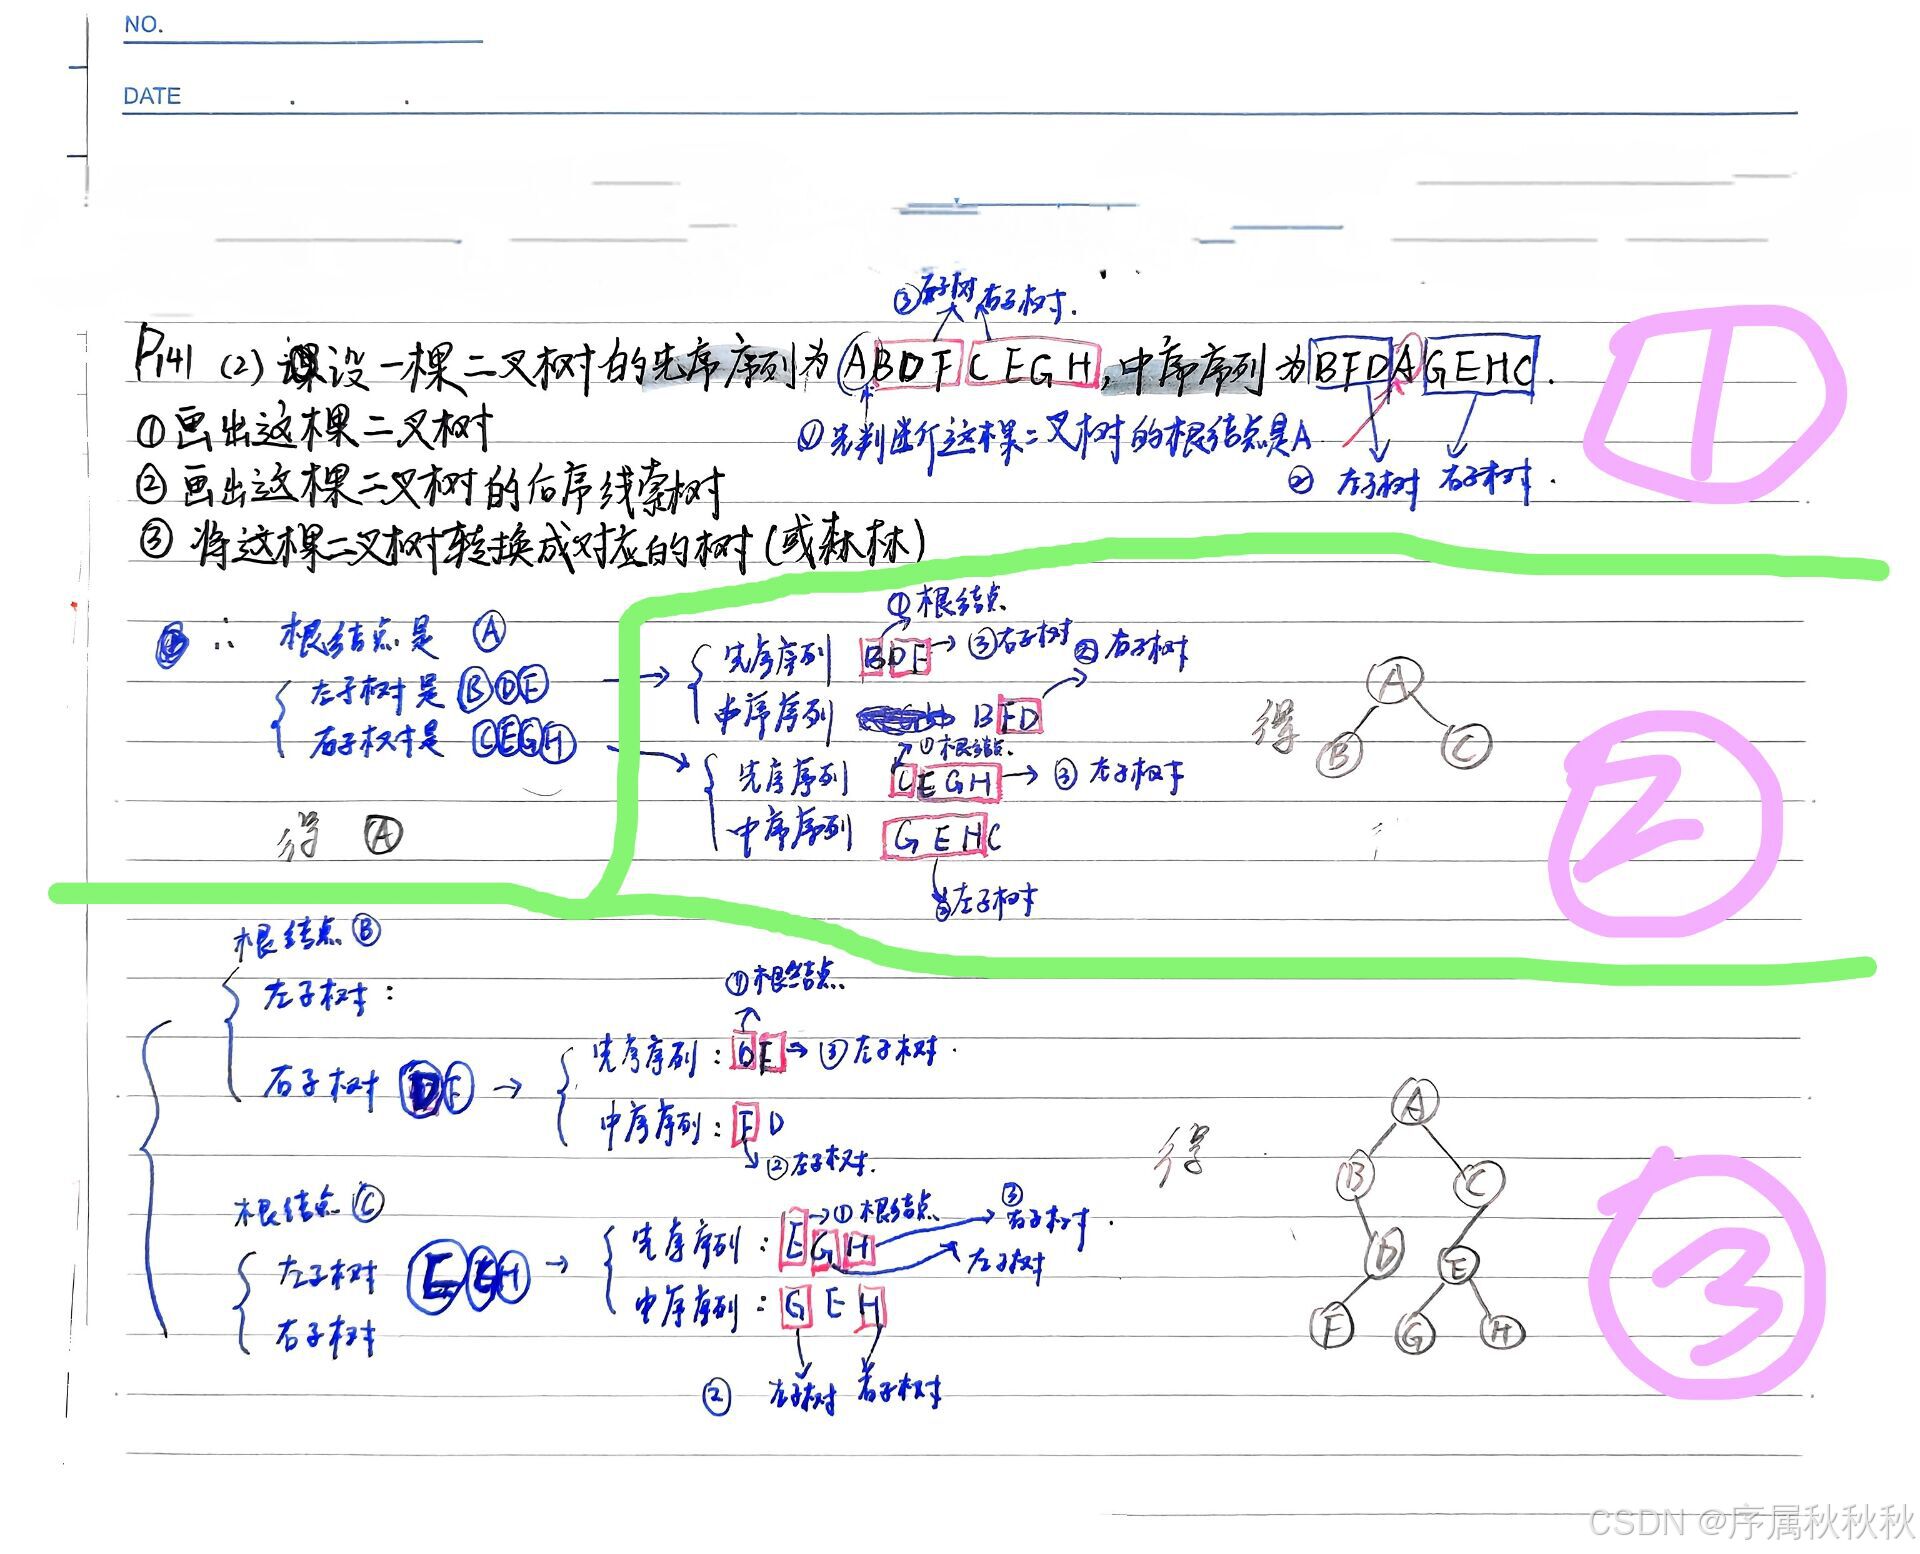 NO.
DATE
③左子树 右子树.
P141 (2) 设一棵二叉树的先序序列为ABDFCEGH,中序序列为BFDAGEHC.
①画出这棵二叉树
①先判断这棵二叉树的根结点是A
②画出这棵二叉树的后序线索树
② 左子树 右子树.
③ 将这棵二叉树转换成对应的树(或森林)
1
∴ 根结点是 A
左子树是 BDF
右子树是 CEGH
得 A
①根结点
先序序列 BDF → ③右子树 ②右子树
中序序列 BFD
①根结点
先序序列 CEGH → ③ 左子树
中序序列 GEHC
②左子树
得
A
B C
2
根结点 B
左子树:
右子树 DF →
①根结点
先序序列: DF → ③左子树.
中序序列: FD
②左子树.
根结点 C
左子树 EGH →
右子树
先序序列: EGH →①根结点 ③右子树.
左子树
中序序列: GEH
② 左子树 右子树
得
A
B C
D E
F G H
3
CSDN @序属秋秋秋